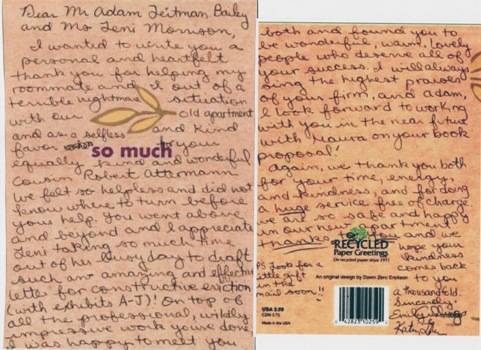 Dear Mr Adam Leitman Bailey
and Ms Leni Morrison,
I wanted to write you a
personal and heartfelt
thank you for helping my
roommate and I out of a
terrible nightmare situation
with our old apartment
and as a selfless and kind
favor to your
so much
equally kind and wonderful
cousin Robert Attermann
We felt so helpless and did not
know where to turn before
your help. You went above
and beyond and I appreciate
Leni taking so much time
out of her every day to draft
such an amazing and effective
letter for constructive eviction
(with exhibits A-J)! On top of
all the professional, wildly
impressive work you've done,
I was happy to meet you
both and found you to
be wonderful, warm, lovely
people who deserve all of
your success. I will always
sing the highest praises
of your firm, and Adam,
I look forward to working
with you in the near future
with Maura on your book
proposal!
Again, we thank you both
for your time, energy,
and kindness, and for doing
a huge service free of charge.
so safe and happy
in our new apartment
thanks
and we
hope your
kindness
comes back
to you
a thousand fold.
Sincerely,
Emily
Katie
PS Look for a
little gift in
the mail soon!!
RECYCLED
Paper Greetings
On recycled paper since 1971
An original design by Dawn Zero Erickson
USA 2.50
Made in the USA